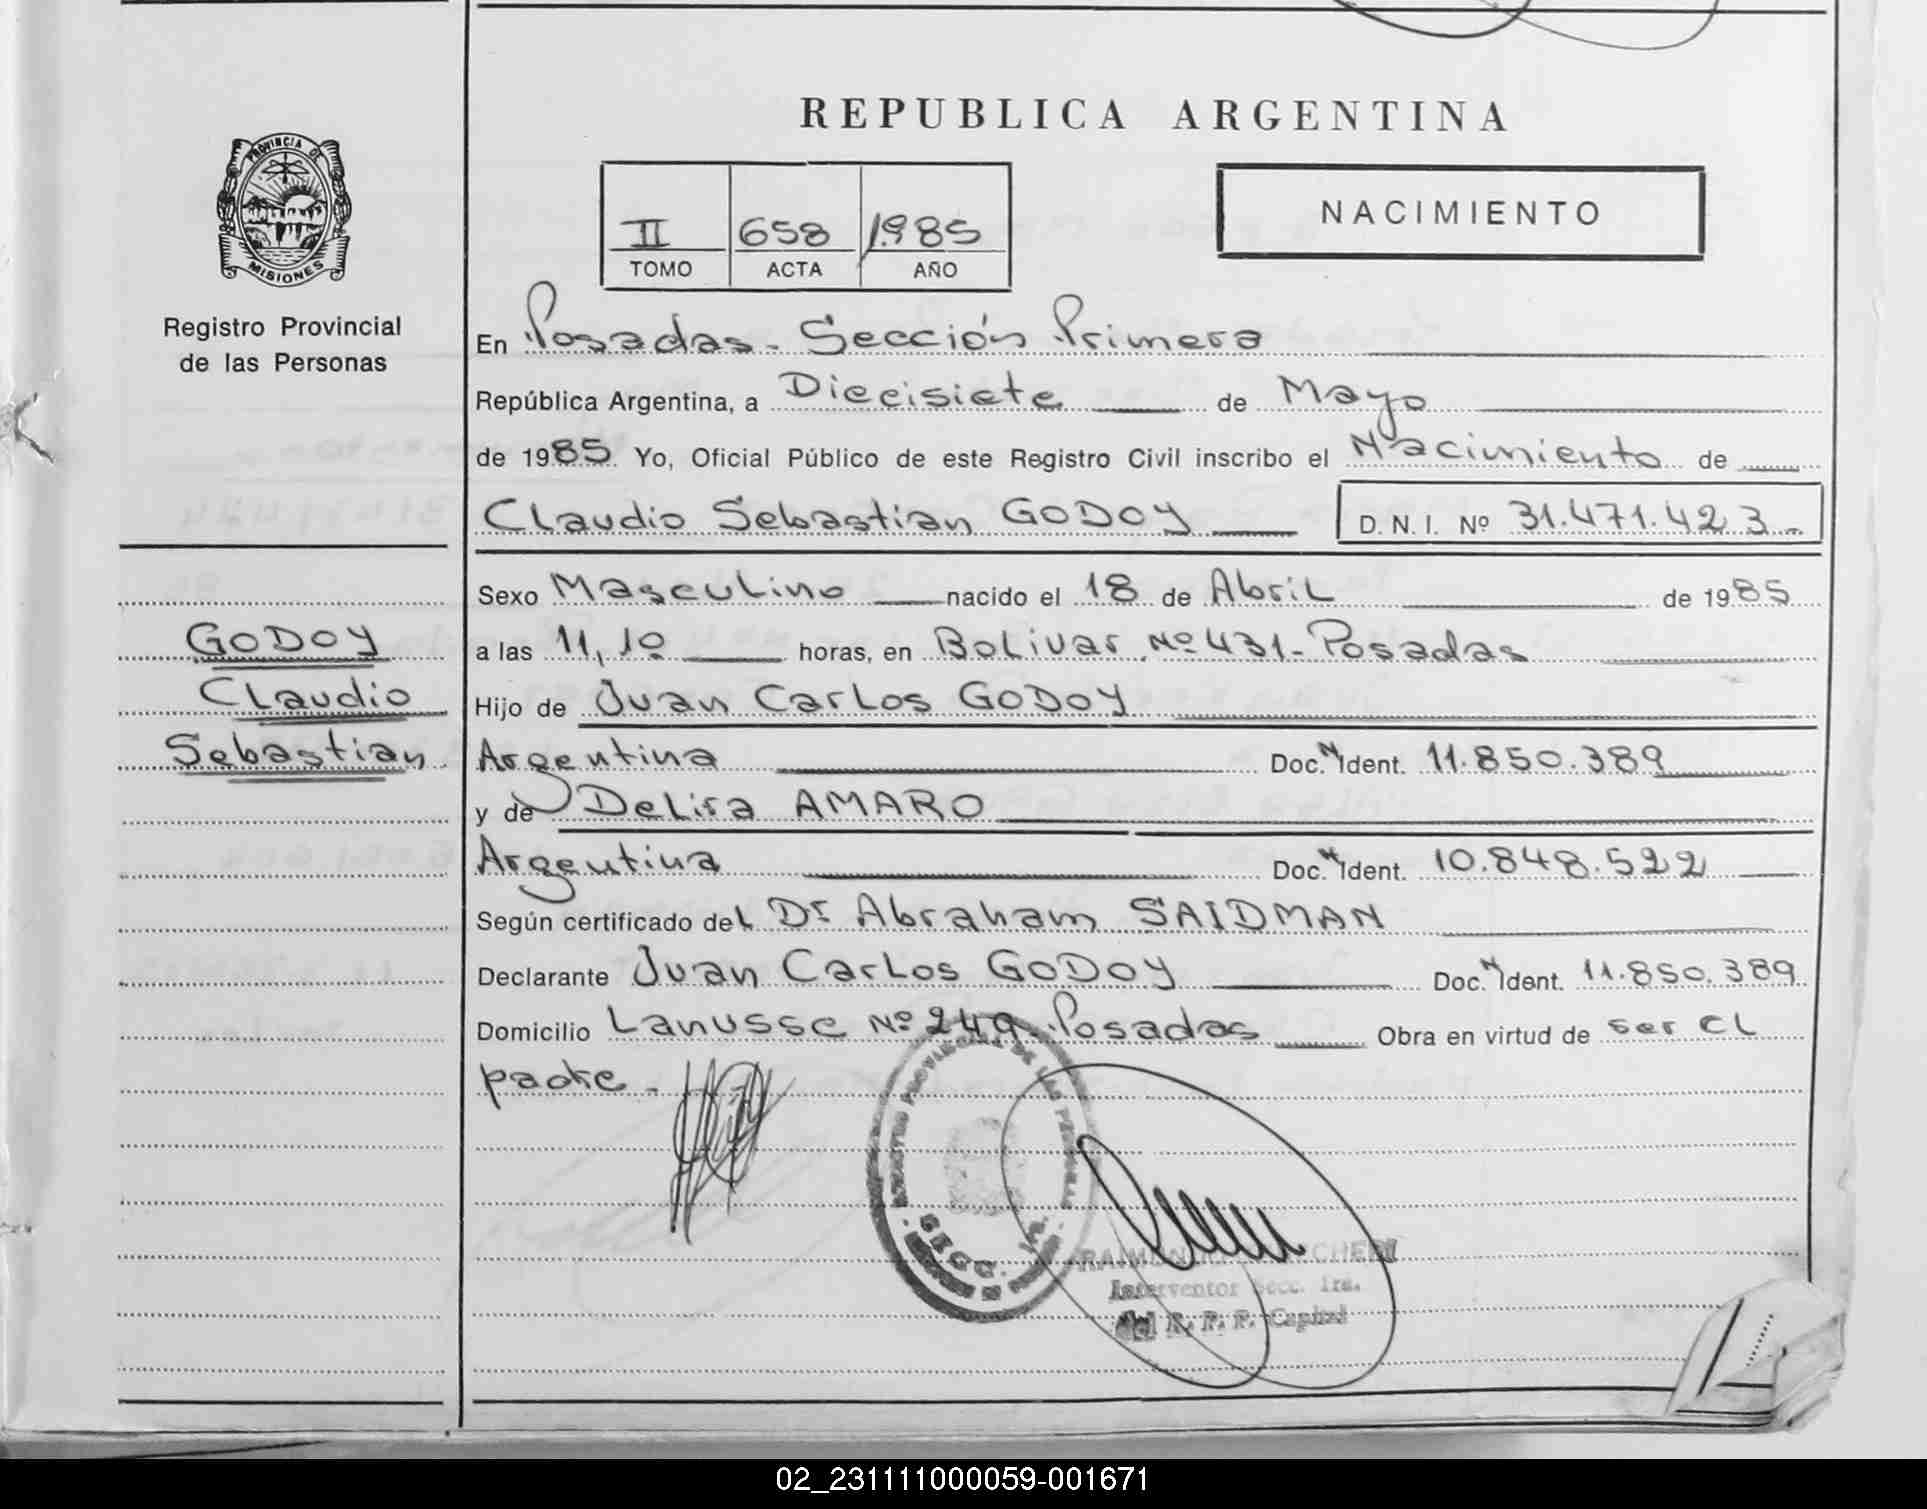 REPUBLICA ARGENTINA
PROVINCIA DE
MISIONES
Registro Provincial
de las Personas
II 658 1985
TOMO ACTA AÑO
NACIMIENTO
En Posadas - Sección Primera
República Argentina, a Diecisiete de Mayo
de 1985 Yo, Oficial Público de este Registro Civil inscribo el Nacimiento de
Claudio Sebastian GODOY D. N. I. Nº 31.471.423
Sexo Masculino nacido el 18 de Abril de 1985
GODOY
Claudio
Sebastian
a las 11,10 horas, en Bolivar Nº 431 - Posadas
Hijo de Juan Carlos GODOY
Argentina Doc. N Ident. 11.850.389
y de Delira AMARO
Argentina Doc. N Ident. 10.848.522
Según certificado del Dr Abraham SAIDMAN
Declarante Juan Carlos GODOY Doc. N Ident. 11.850.389
Domicilio Lanusse Nº 249 - Posadas Obra en virtud de ser el
padre -
PROVINCIAL DE LAS PERSONAS
SECC.
Interventor Secc. 1ra.
del R. P. P. Capital
02_231111000059-001671